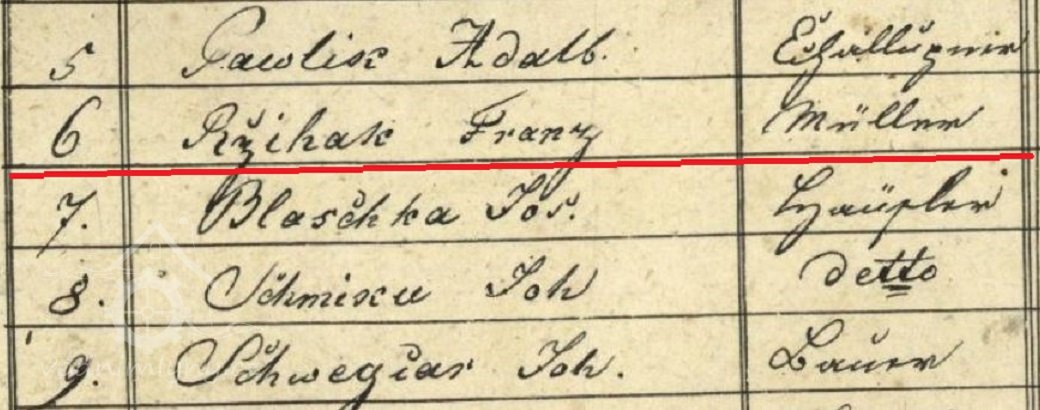 5 Pawlik Adalb. Chalupner
6 Ržihak Franz Müller
7. Blaschka Jos. Häusler
8. Schmiku Joh detto
9. Schwegćar Joh. Bauer